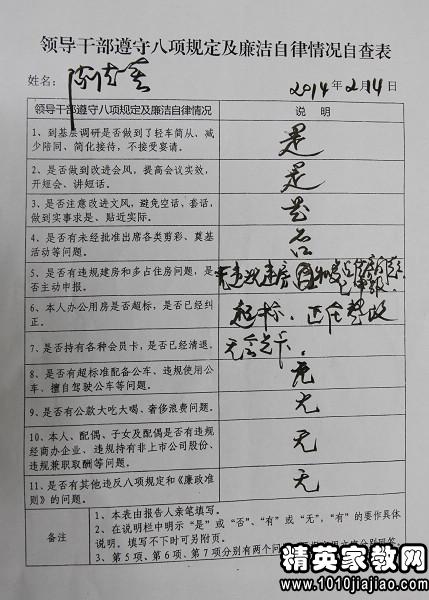 领导干部遵守八项规定及廉洁自律情况自查表
姓名：
2014年2月14日
领导干部遵守八项规定及廉洁自律情况 说 明
1、到基层调研是否做到了轻车简从、减
少陪同、简化接待，不接受宴请。
是
2、是否做到改进会风，提高会议实效，
开短会、讲短话。
是
3、是否注意改进文风，避免空话、套话，
做到实事求是、贴近实际。
是
4、是否有未经批准出席各类剪彩、奠基
活动等问题。
否
5、是否有违规建房和多占住房问题，是
否主动申报。
无违规建房
6、本人办公用房是否超标，是否已经纠
正。
超标，正在整改
7、是否持有各种会员卡，是否已经清退。
无会员卡。
8、是否有超标准配备公车、违规使用公
车、擅自驾驶公车等问题。
无
9、是否有公款大吃大喝、奢侈浪费问题。
无
10、本人、配偶、子女及配偶是否有违规
经商办企业、违规持有非上市公司股份、
违规兼职取酬等问题。
无
11、是否有其他违反八项规定和《廉政准
则》的问题。
无
备注
1、本表由报告人亲笔填写。
2、在说明栏中明示“是”或“否”、“有”或“无”，“有”的要作具体
说明，填写不下时可另附页。
3、第5项、第6项、第7项分别有两个问
精英家教网
www.1010jiajiao.com